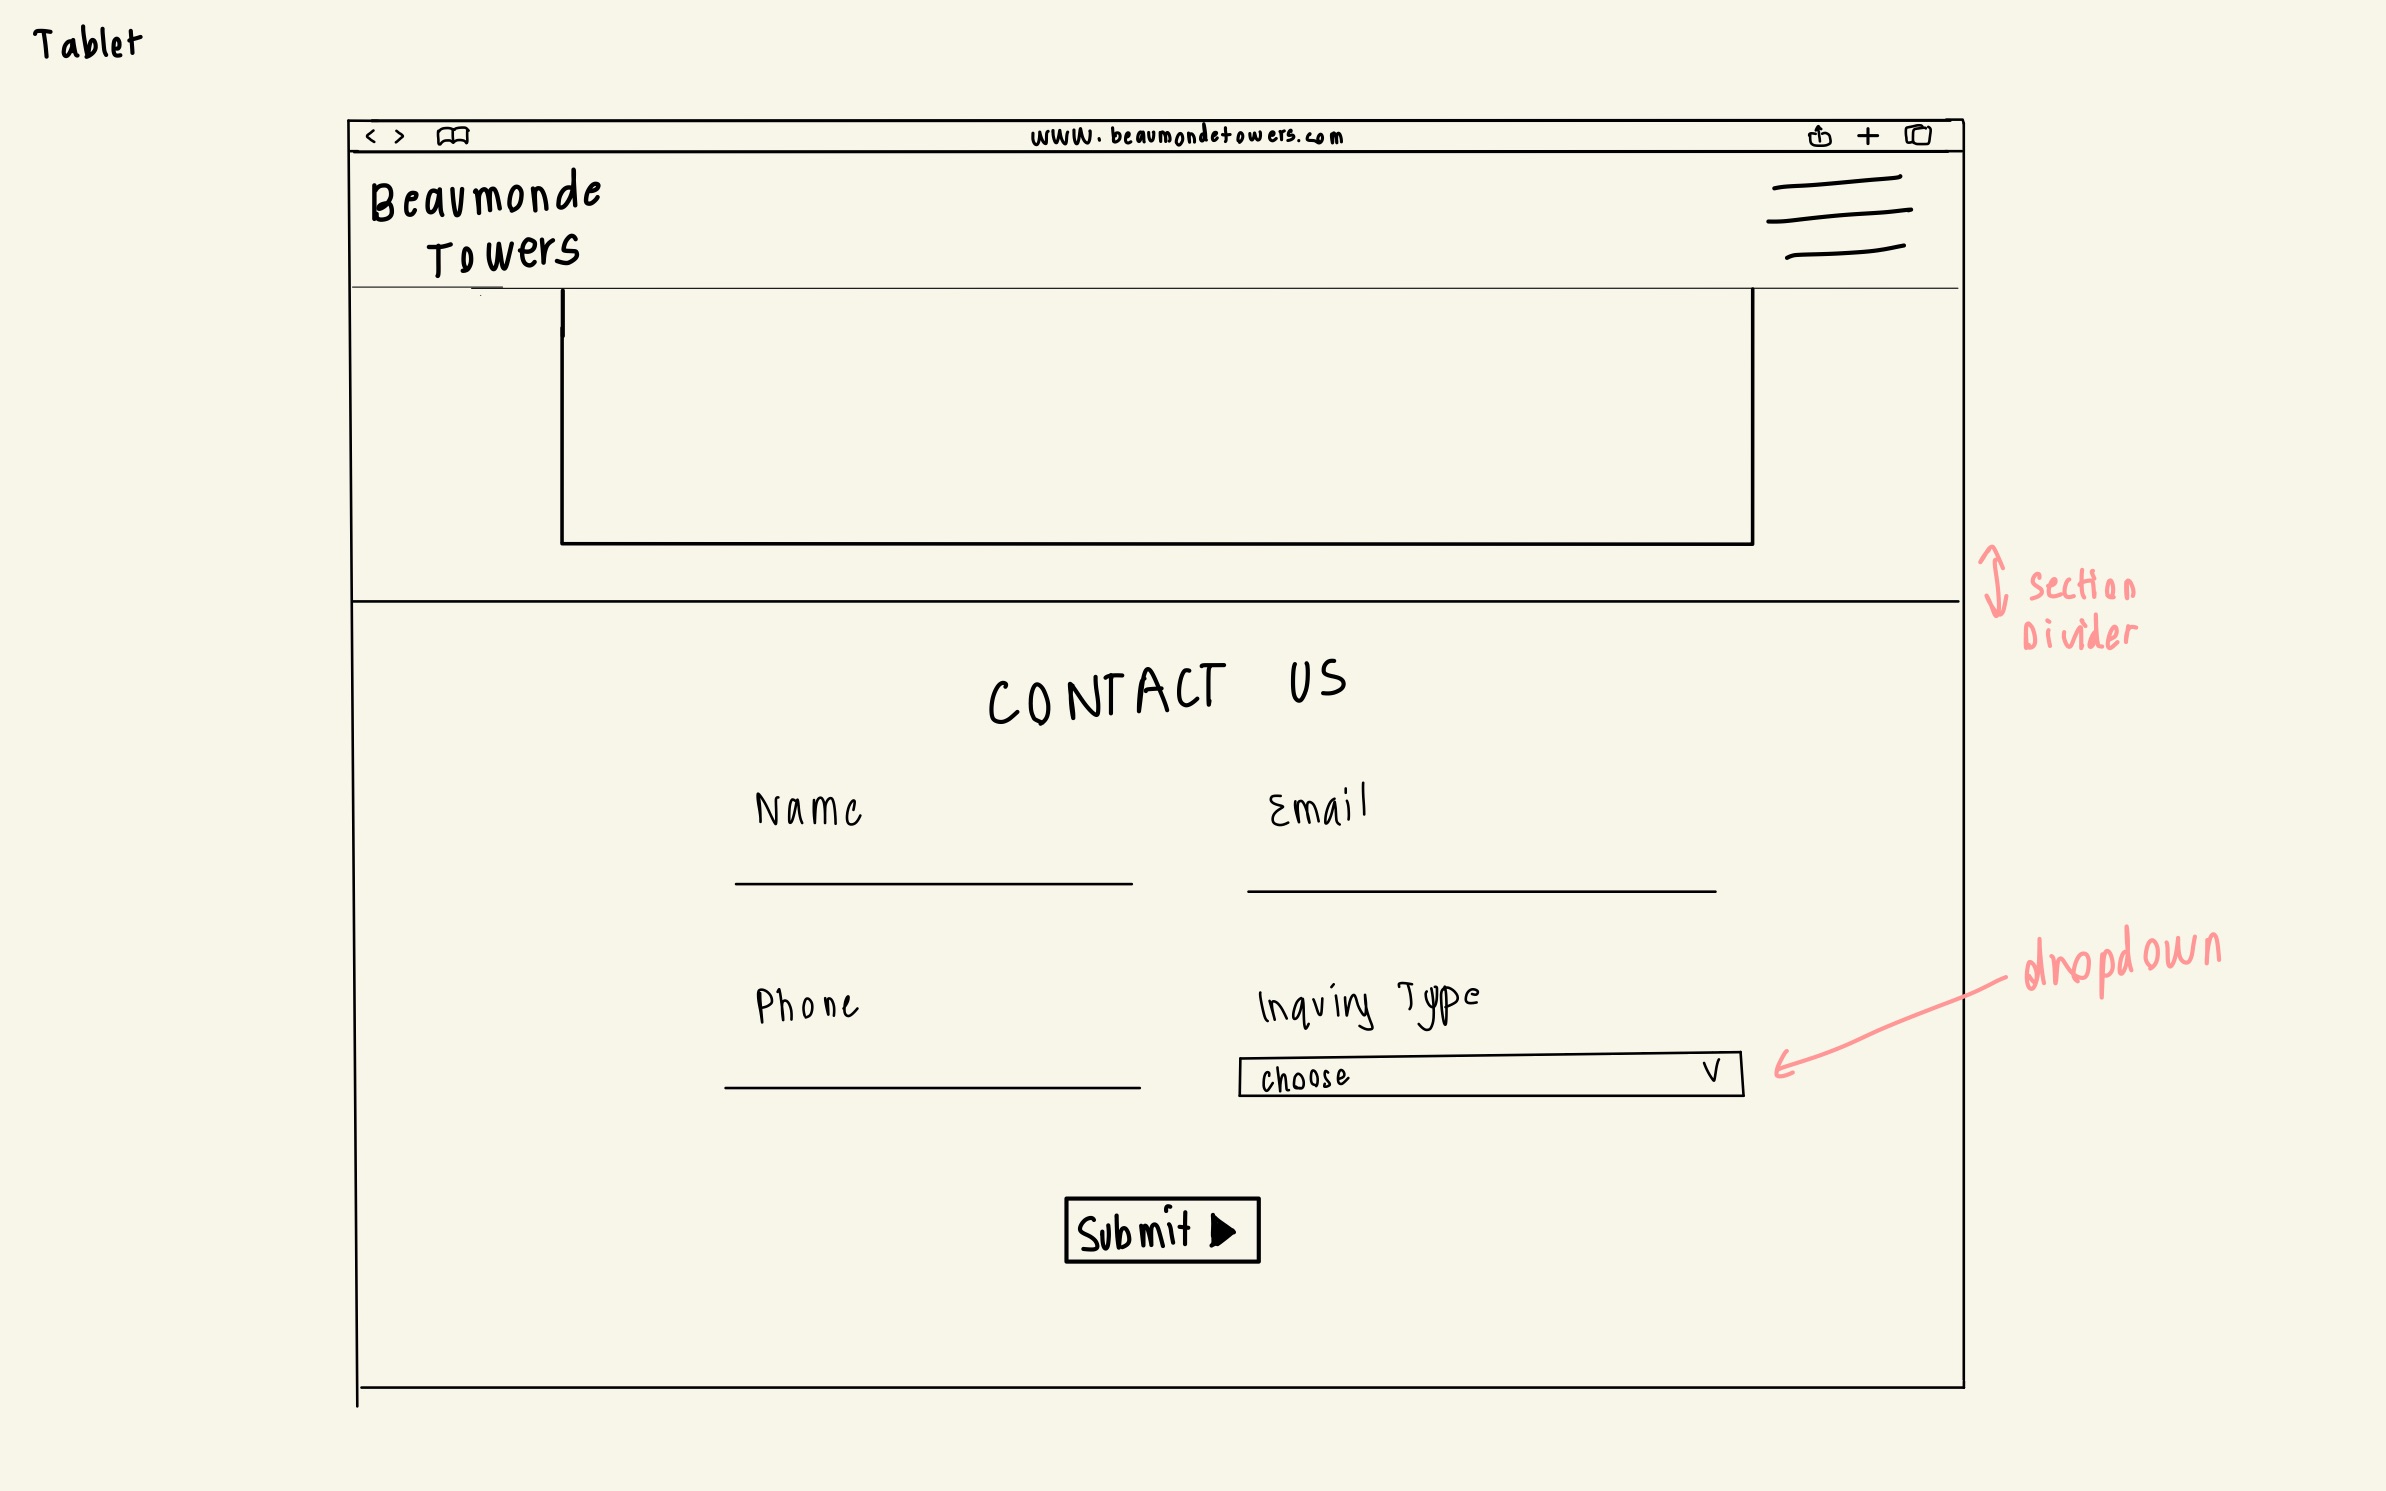 Tablet
www.beaumondetowers.com
Beaumonde
Towers
section
Divider
CONTACT US
Name
Email
dropdown
Phone
Inquiry Type
choose
Submit